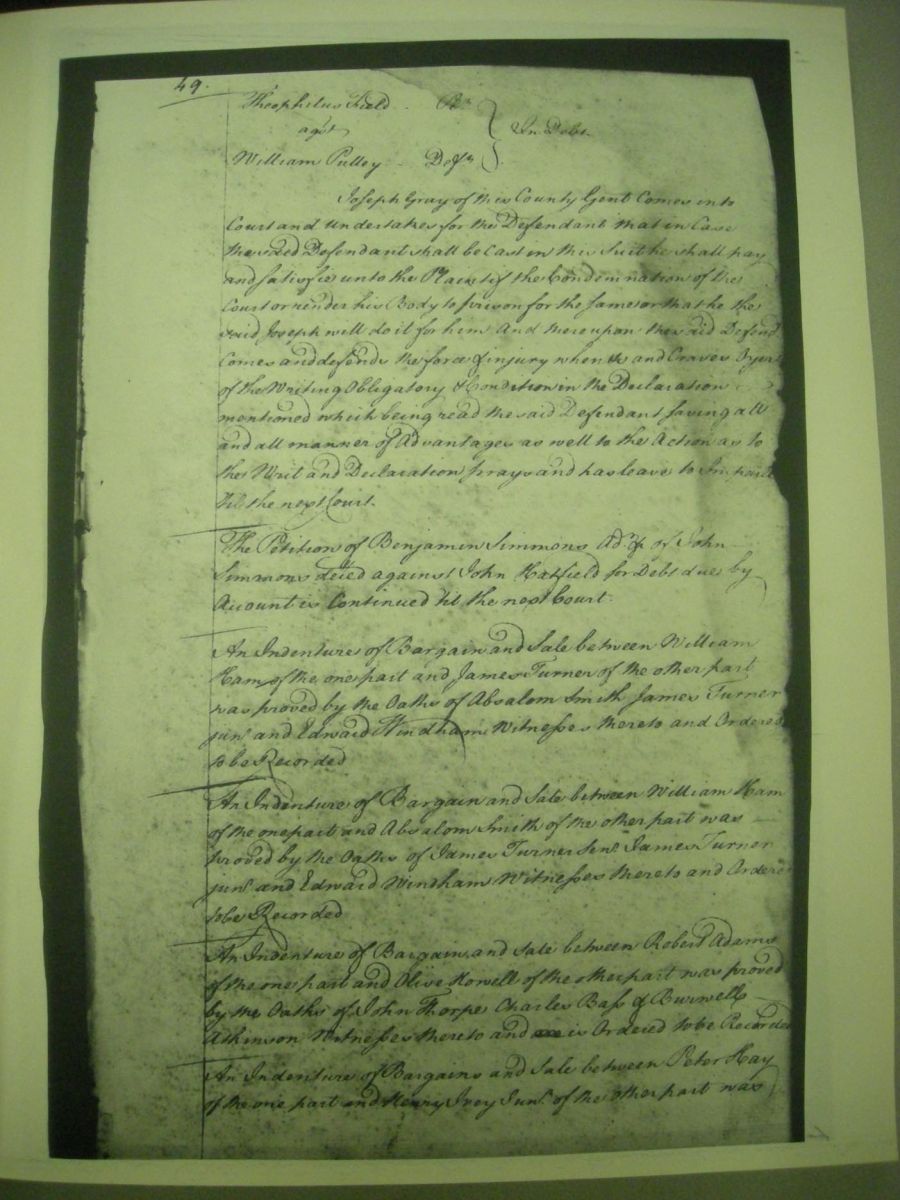 49.
Theophilus Field .. Pl^r
ag^st } In Debt
William Pulley .. Def^t
Joseph Gray of this County Gent Comes into
Court and undertakes for the Defendant that in Case
the said Defendant shall be Cast in this Suit he shall pay
and satisfie unto the Plaintif the Condemnation of the
Court or render his Body to prison for the same or that he the
said Joseph will do it for him And thereupon the said Defend
Comes and defends the force & injury when &c and Craves Oyer
of the Writing Obligatory & Condition in the Declaration
mentioned which being read the said Defendant saving all
and all manner of Advantages as well to the Action as to
the Writ and Declaration prays and has leave to Imparle
'til the next Court.
The Petition of Benjamin Simmons Ad^r &c of John
Simmons deced against John Hatfield for Debt due by
Account is Continued 'til the next Court.
An Indenture of Bargain and Sale between William
Ham of the one part and James Turner of the other part
was proved by the Oaths of Absalom Smith James Turner
jun^r and Edward Windham Witnesses thereto and Ordered
to be Recorded
An Indenture of Bargain and Sale between William Ham
of the one part and Absalom Smith of the other part was
proved by the Oaths of James Turner Sen^r James Turner
jun^r and Edward Windham Witnesses thereto and Ordered
to be Recorded
An Indenture of Bargain and Sale between Robert Adams
of the one part and Olive Howell of the other part was proved
by the Oaths of John Thorpe Charles Bass & Burwell
Atkinson Witnesses thereto and is Ordered to be Recorded
An Indenture of Bargain and Sale between Peter Hay
of the one part and Henry Ivey Jun^r of the other part was